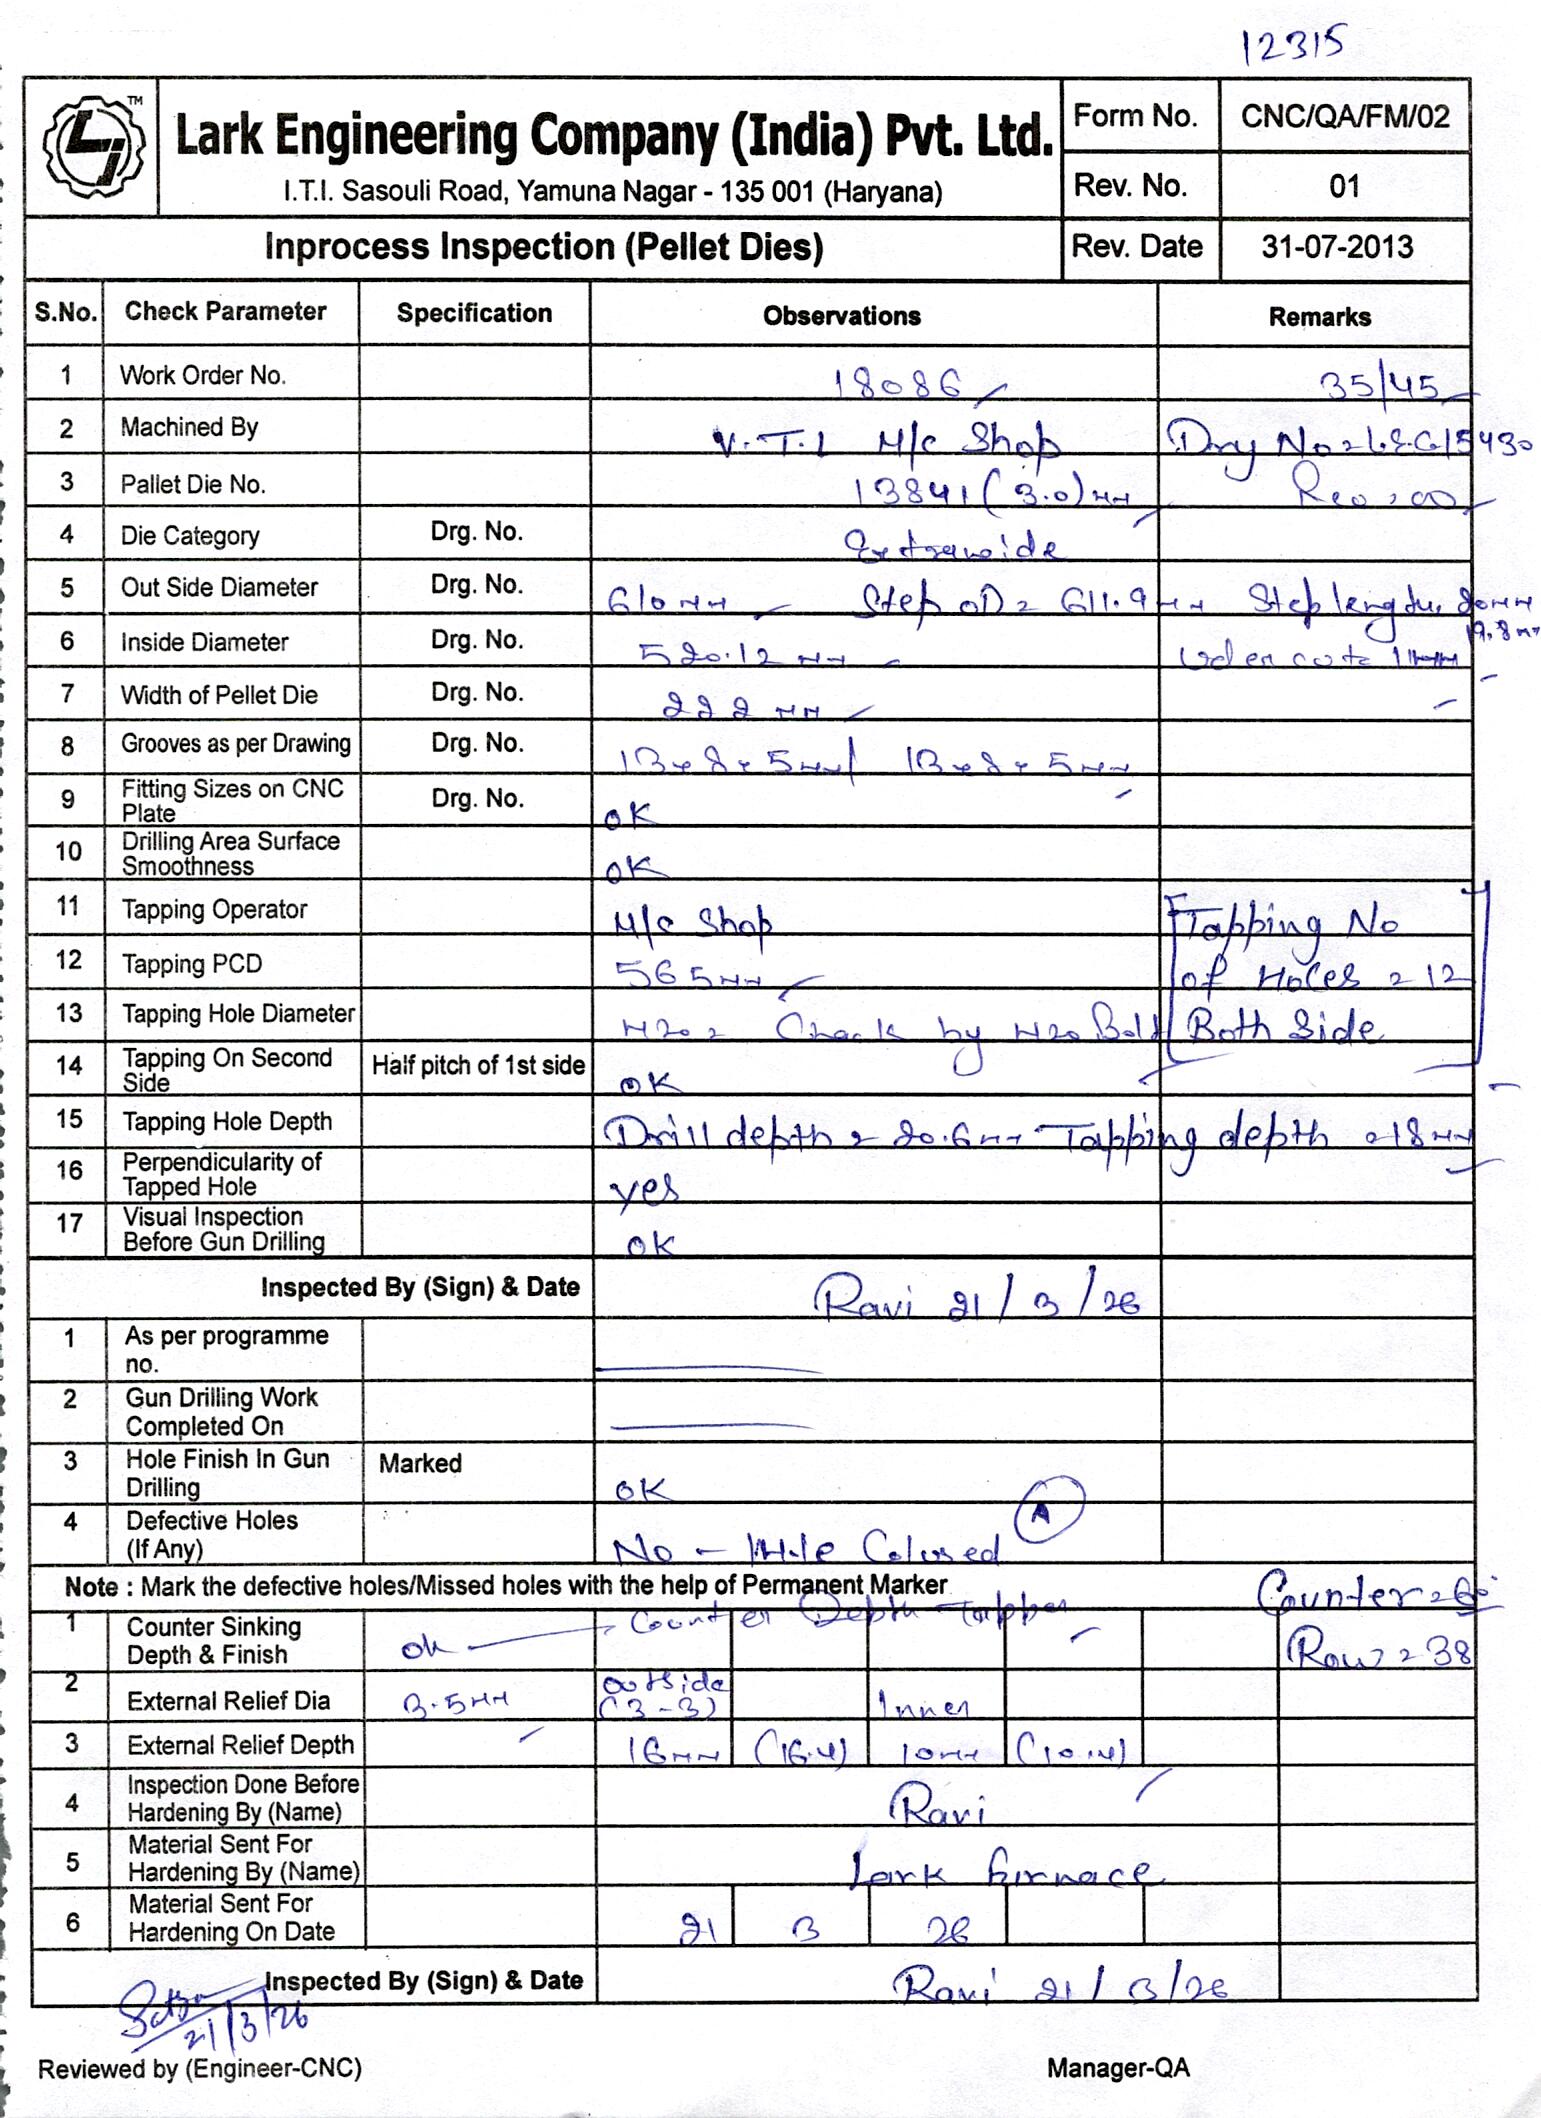 12315
Lark Engineering Company (India) Pvt. Ltd.
I.T.I. Sasouli Road, Yamuna Nagar - 135 001 (Haryana)
Form No. CNC/QA/FM/02
Rev. No. 01
Inprocess Inspection (Pellet Dies) Rev. Date 31-07-2013
S.No. Check Parameter Specification Observations Remarks
1 Work Order No. 18086 35/45
2 Machined By V.T.L M/c Shop
3 Pallet Die No. 13841 (3.0) mm
4 Die Category Drg. No. Extrawide
5 Out Side Diameter Drg. No. 610 mm Step OD = 611.9 mm Step length 20mm
19.8 mm
6 Inside Diameter Drg. No. 520.12 mm
7 Width of Pellet Die Drg. No. 222 mm
8 Grooves as per Drawing Drg. No. 13x8x5mm/ 13x8x5mm
9 Fitting Sizes on CNC Plate Drg. No. OK
10 Drilling Area Surface Smoothness OK
11 Tapping Operator M/c Shop Tapping No
12 Tapping PCD 565mm of Holes = 12
13 Tapping Hole Diameter M20 = Check by M20 Bolt Both Side
14 Tapping On Second Side Half pitch of 1st side OK
15 Tapping Hole Depth Drill depth = 20.6mm Tapping depth = 18mm
16 Perpendicularity of Tapped Hole yes
17 Visual Inspection Before Gun Drilling OK
Inspected By (Sign) & Date Ravi 21/3/26
1 As per programme no.
2 Gun Drilling Work Completed On
3 Hole Finish In Gun Drilling Marked OK
4 Defective Holes (If Any) No - Hole Colused A
Note : Mark the defective holes/Missed holes with the help of Permanent Marker
Counter = 60°
1 Counter Sinking Depth & Finish ok Counter Depth Tapper Row = 38
2 External Relief Dia 3.5mm outside (3-3) Inner
3 External Relief Depth 16mm (16.4) 10mm (10.14)
4 Inspection Done Before Hardening By (Name) Ravi
5 Material Sent For Hardening By (Name) Lark furnace
6 Material Sent For Hardening On Date 21 3 26
Inspected By (Sign) & Date Ravi 21/3/26
21/3/26
Reviewed by (Engineer-CNC) Manager-QA